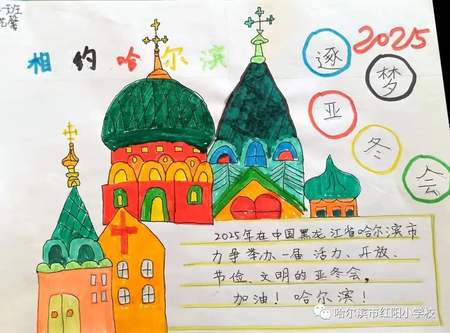 一班
相约哈尔滨
2025
逐
梦
亚
冬
会
2025年在中国黑龙江省哈尔滨市
力争举办一届 活力、开放、
节俭、文明的亚冬会,
加油! 哈尔滨!
哈尔滨市红阳小学校